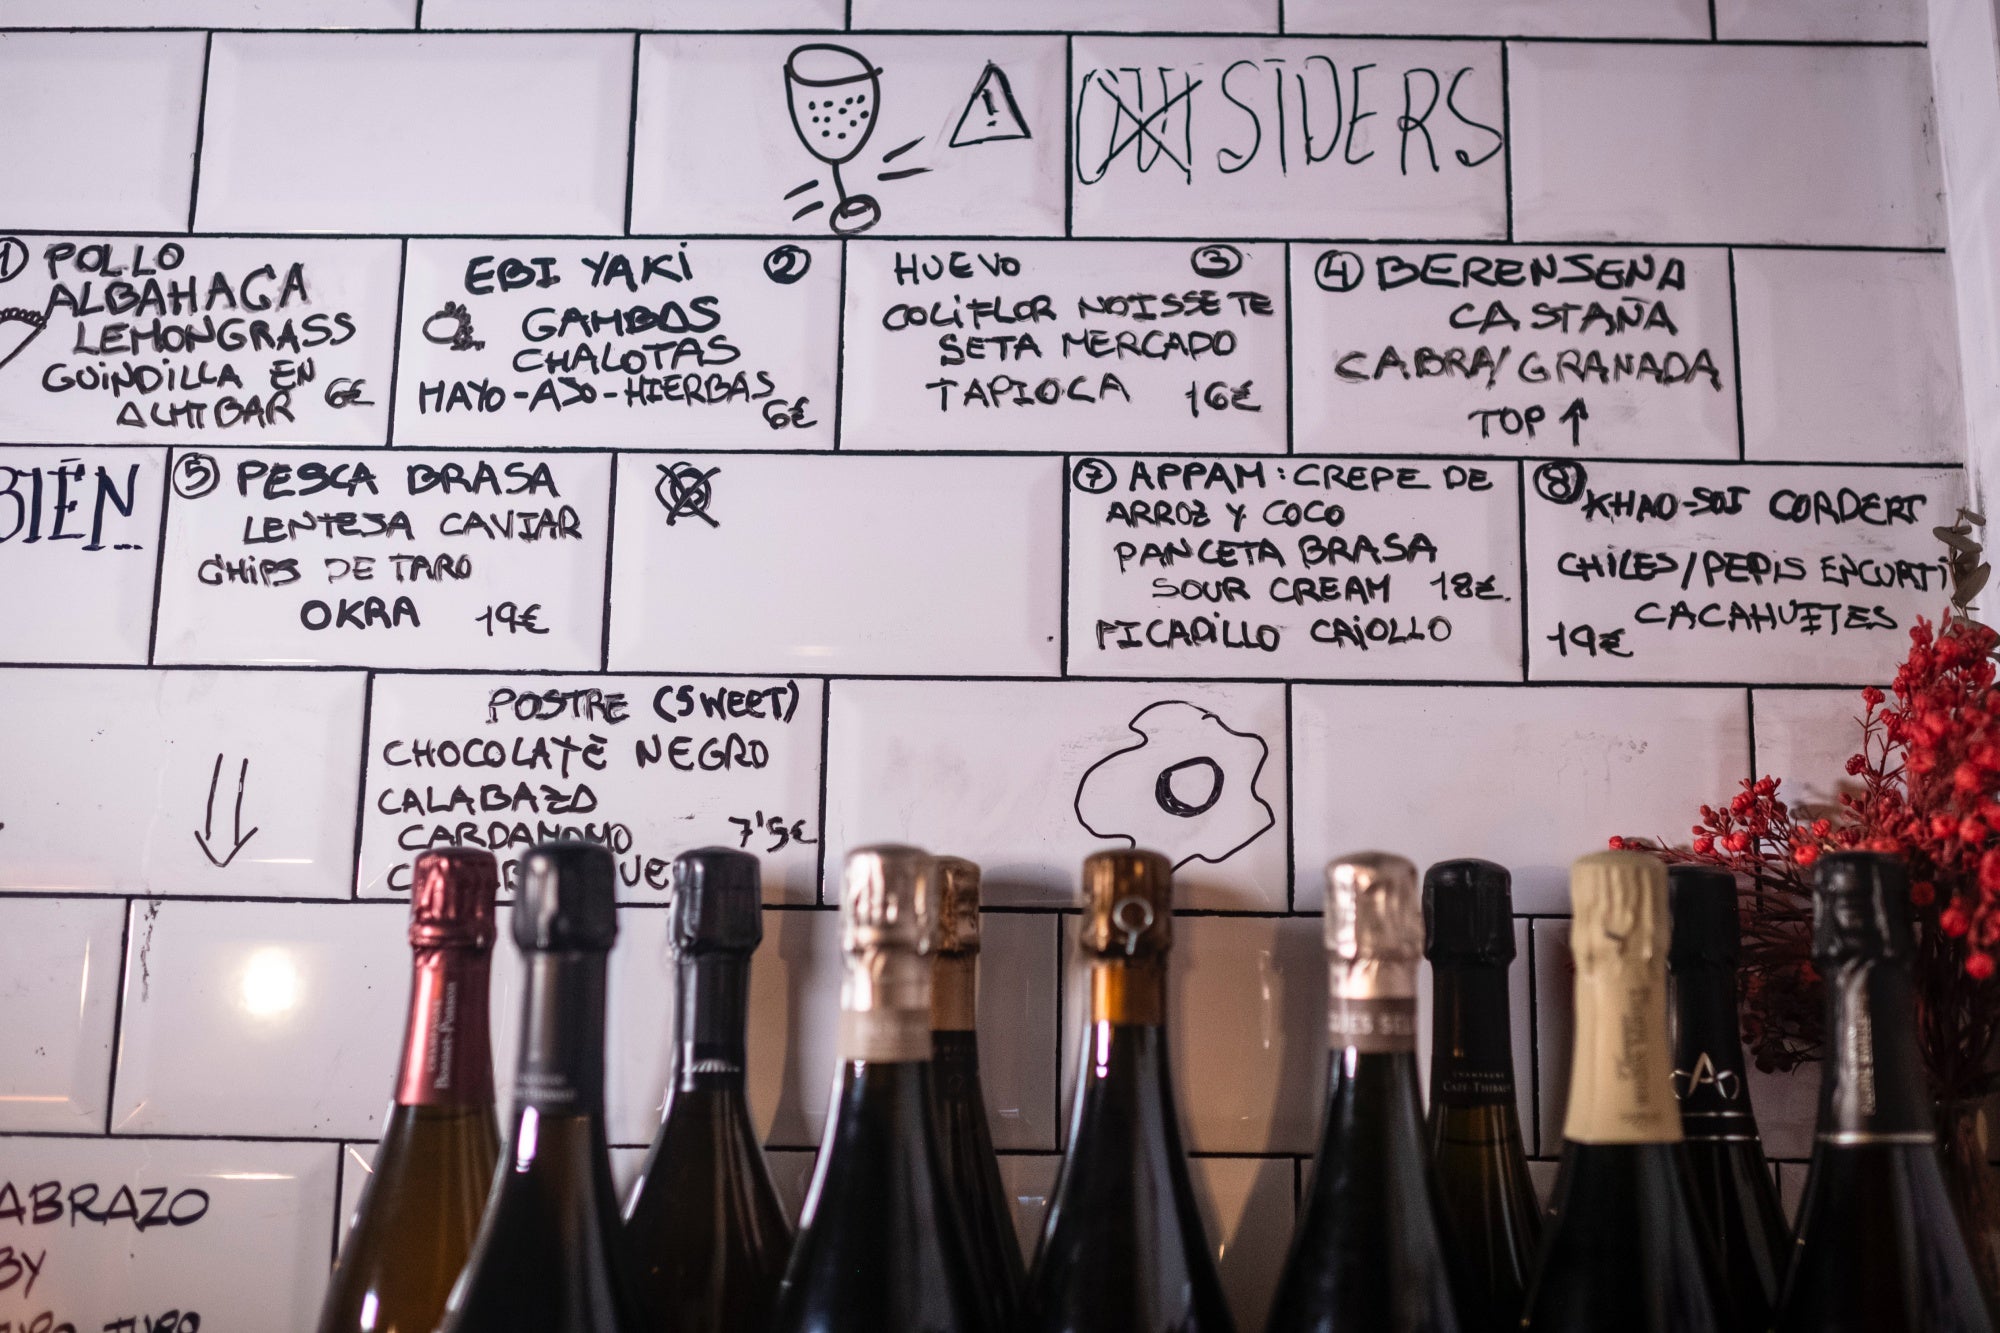 SIDERS
① POLLO
ALBAHACA
LEMONGRASS
GUINDILLA EN
ALMIBAR 6€
EBI YAKI ②
GAMBAS
CHALOTAS
MAYO-AJO-HIERBAS
6€
HUEVO ③
COLIFLOR NOISSETE
SETA MERCADO
TAPIOCA 16€
④ BERENSENA
CASTAÑA
CABRA/GRANADA
TOP ↑
BIEN...
⑤ PESCA BRASA
LENTEJA CAVIAR
CHIPS DE TARO
OKRA 19€
⑦ APPAM: CREPE DE
ARROZ Y COCO
PANCETA BRASA
SOUR CREAM 18€.
PICADILLO CRIOLLO
⑧ KHAO-SOI CORDERO
CHILES/PEPIS ENCURTI
CACAHUETES
19€
POSTRE (SWEET)
CHOCOLATE NEGRO
CALABAZA
CARDAMOMO 7'5€
ABRAZO
BY